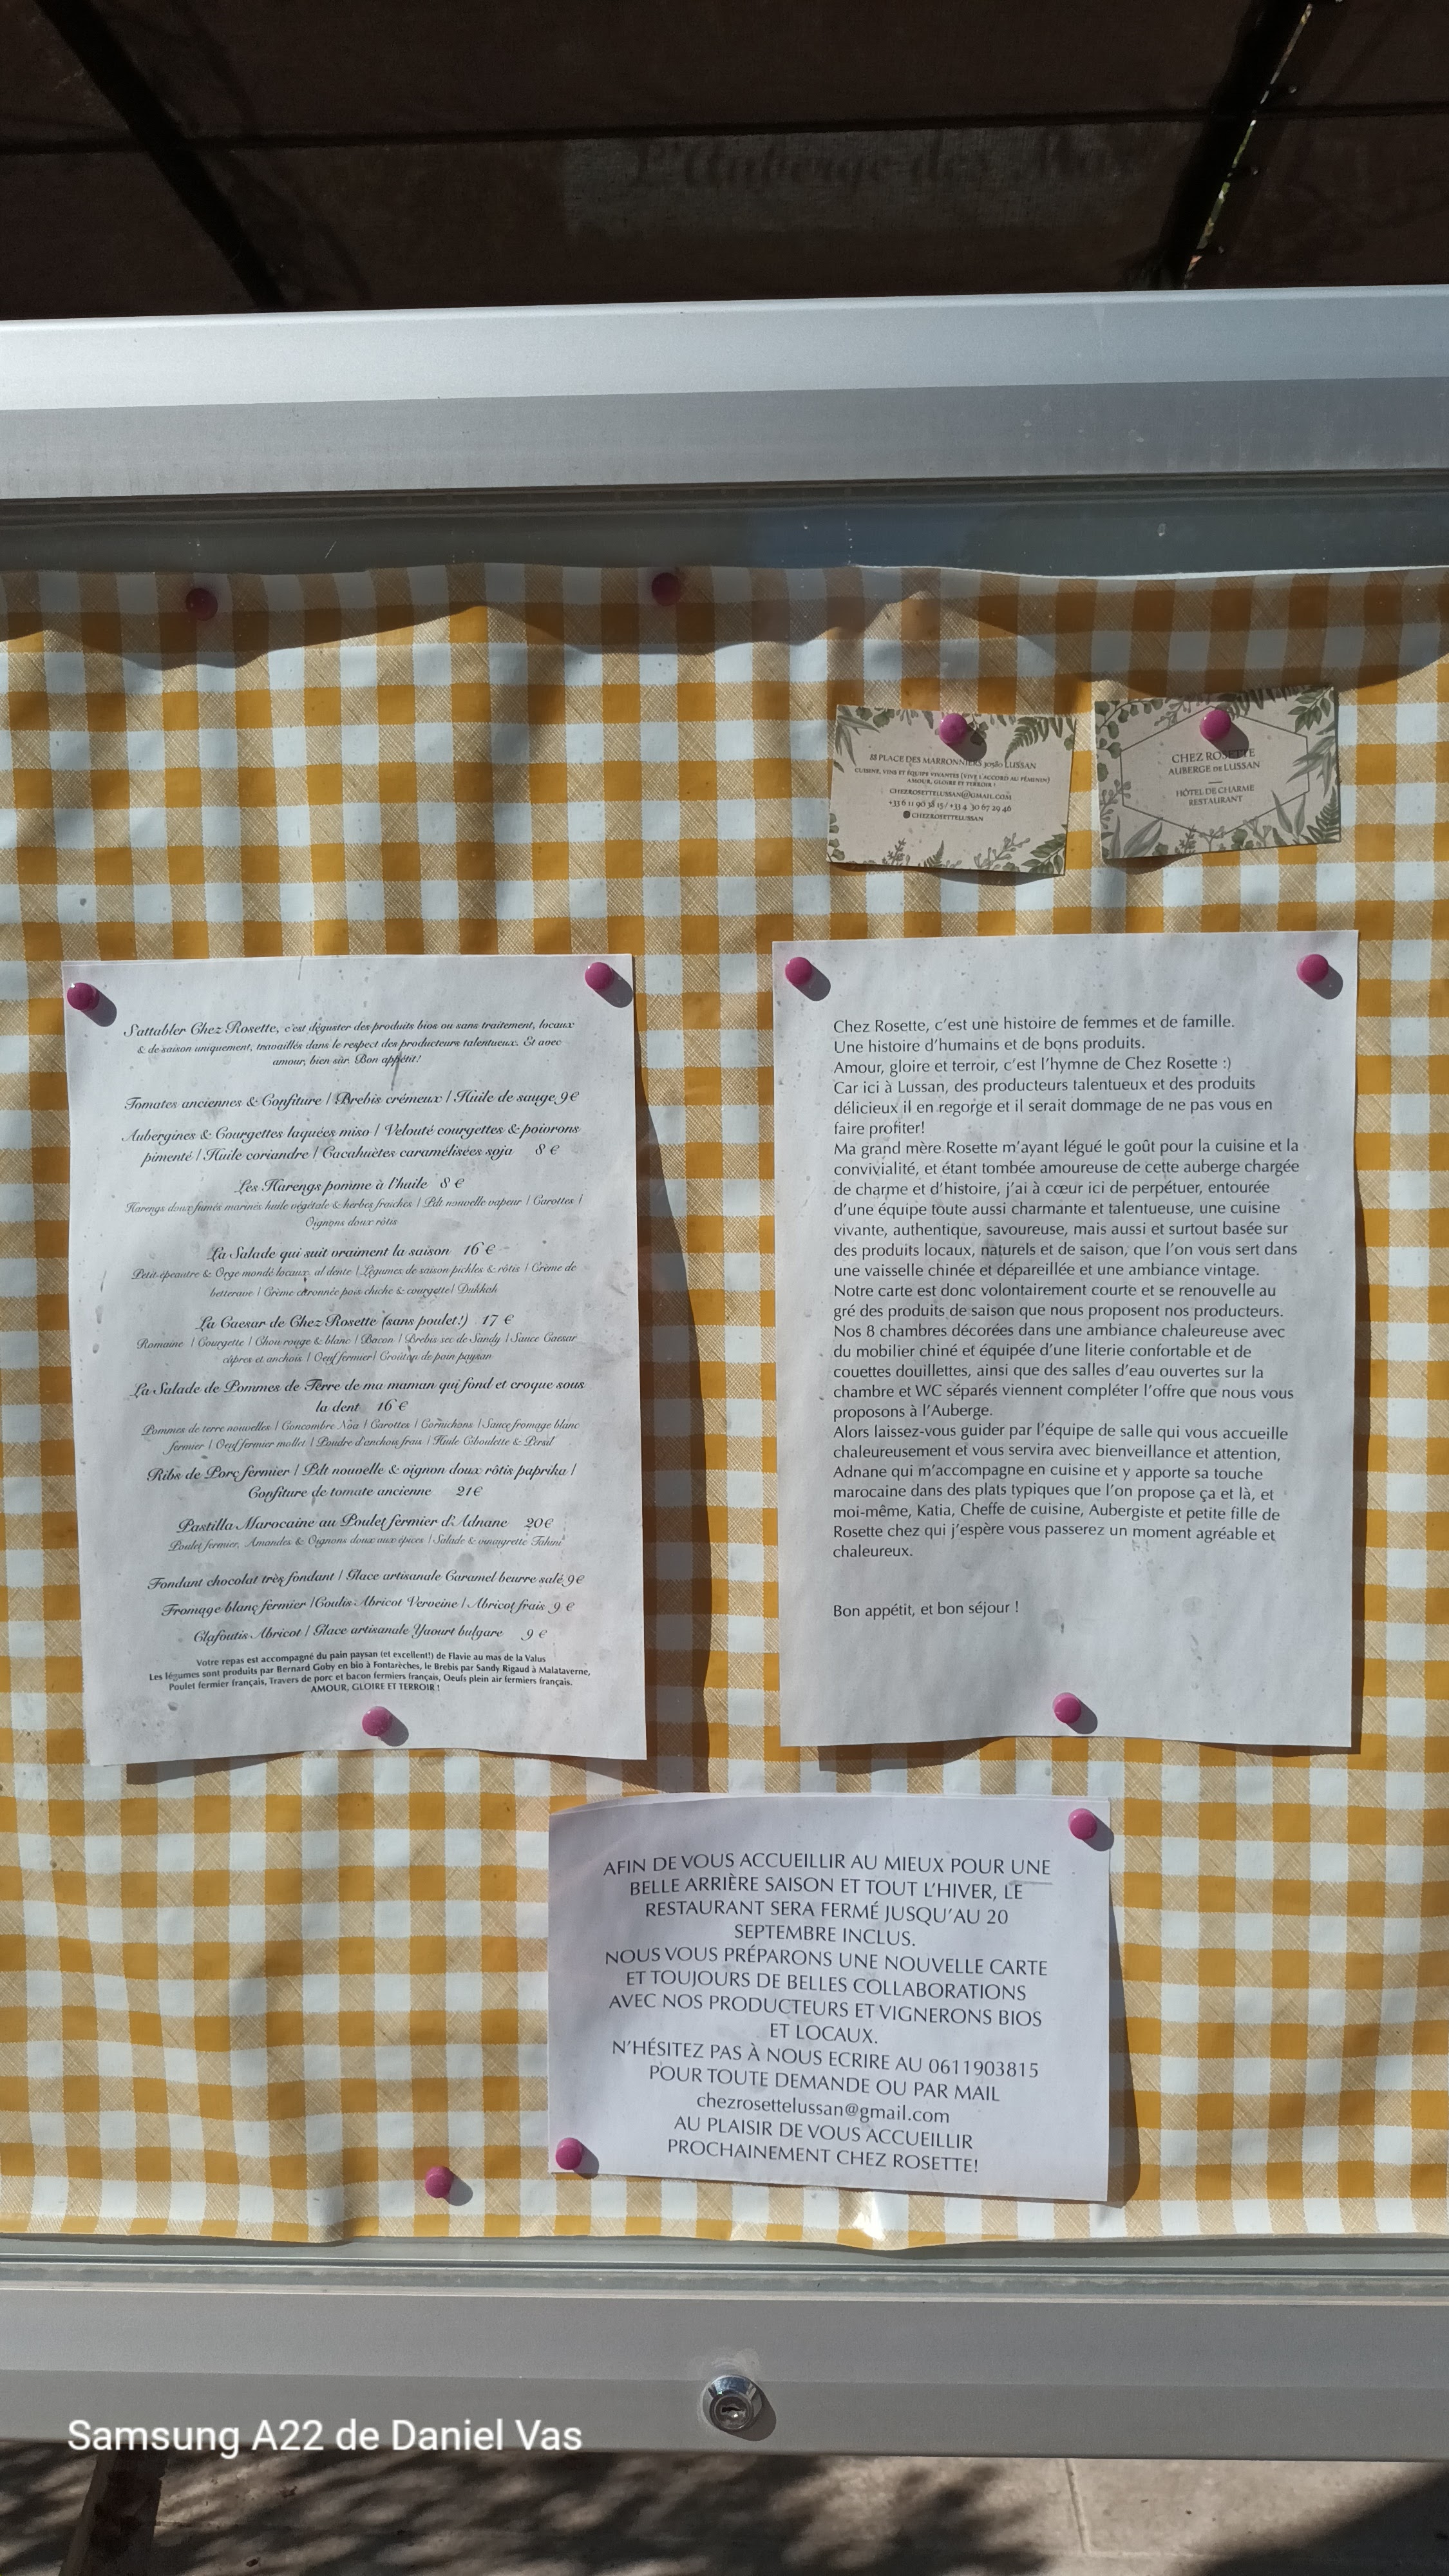 L'Auberge des
88 PLACE DES MARRONNIERS 30580 LUSSAN
CUISINE, VINS ET ÉQUIPE VIVANTES (VIVE L'ACCORD AU FÉMININ)
AMOUR, GLOIRE ET TERROIR !
CHEZROSETTELUSSAN@GMAIL.COM
+33 6 11 90 38 15 / +33 4 30 67 29 46
CHEZROSETTELUSSAN
CHEZ ROSETTE
AUBERGE DE LUSSAN
HÔTEL DE CHARME
RESTAURANT
S'attabler Chez Rosette, c'est déguster des produits bios ou sans traitement, locaux
& de saison uniquement, travaillés dans le respect des producteurs talentueux. Et avec
amour, bien sûr. Bon appétit!
Tomates anciennes & Confiture | Brebis crémeux | Huile de sauge 9€
Aubergines & Courgettes laquées miso | Velouté courgettes & poivrons
pimenté | Huile coriandre | Cacahuètes caramélisées soja 8 €
Les Harengs pomme à l'huile 8 €
Harengs doux fumés marinés huile végétale & herbes fraiches | Pdt nouvelle vapeur | Carottes |
Oignons doux rôtis
La Salade qui suit vraiment la saison 16 €
Petit-épeautre & Orge mondé locaux, al dente | Légumes de saison pickles & rôtis | Crème de
betterave | Crème citronnée pois chiche & courgette| Dukkah
La Caesar de Chez Rosette (sans poulet!) 17 €
Romaine | Courgette | Chou rouge & blanc | Bacon | Brebis sec de Sandy | Sauce Caesar
câpres et anchois | Oeuf fermier| Croûton de pain paysan
La Salade de Pommes de Terre de ma maman qui fond et croque sous
la dent 16 €
Pommes de terre nouvelles | Concombre Noa | Carottes | Cornichons | Sauce fromage blanc
fermier | Oeuf fermier mollet | Poudre d'anchois frais | Huile Ciboulette & Persil
Ribs de Porc fermier | Pdt nouvelle & oignon doux rôtis paprika |
Confiture de tomate ancienne 21€
Pastilla Marocaine au Poulet fermier d'Adnane 20€
Poulet fermier, Amandes & Oignons doux aux épices | Salade & vinaigrette Tahini
Fondant chocolat très fondant | Glace artisanale Caramel beurre salé 9€
Fromage blanc fermier |Coulis Abricot Verveine | Abricot frais 9 €
Clafoutis Abricot | Glace artisanale Yaourt bulgare 9 €
Votre repas est accompagné du pain paysan (et excellent!) de Flavie au mas de la Valus
Les légumes sont produits par Bernard Goby en bio à Fontarèches, le Brebis par Sandy Rigaud à Malataverne,
Poulet fermier français, Travers de porc et bacon fermiers français, Oeufs plein air fermiers français.
AMOUR, GLOIRE ET TERROIR !
Chez Rosette, c'est une histoire de femmes et de famille.
Une histoire d'humains et de bons produits.
Amour, gloire et terroir, c'est l'hymne de Chez Rosette :)
Car ici à Lussan, des producteurs talentueux et des produits
délicieux il en regorge et il serait dommage de ne pas vous en
faire profiter!
Ma grand mère Rosette m'ayant légué le goût pour la cuisine et la
convivialité, et étant tombée amoureuse de cette auberge chargée
de charme et d'histoire, j'ai à cœur ici de perpétuer, entourée
d'une équipe toute aussi charmante et talentueuse, une cuisine
vivante, authentique, savoureuse, mais aussi et surtout basée sur
des produits locaux, naturels et de saison, que l'on vous sert dans
une vaisselle chinée et dépareillée et une ambiance vintage.
Notre carte est donc volontairement courte et se renouvelle au
gré des produits de saison que nous proposent nos producteurs.
Nos 8 chambres décorées dans une ambiance chaleureuse avec
du mobilier chiné et équipée d'une literie confortable et de
couettes douillettes, ainsi que des salles d'eau ouvertes sur la
chambre et WC séparés viennent compléter l'offre que nous vous
proposons à l'Auberge.
Alors laissez-vous guider par l'équipe de salle qui vous accueille
chaleureusement et vous servira avec bienveillance et attention,
Adnane qui m'accompagne en cuisine et y apporte sa touche
marocaine dans des plats typiques que l'on propose ça et là, et
moi-même, Katia, Cheffe de cuisine, Aubergiste et petite fille de
Rosette chez qui j'espère vous passerez un moment agréable et
chaleureux.
Bon appétit, et bon séjour !
AFIN DE VOUS ACCUEILLIR AU MIEUX POUR UNE
BELLE ARRIÈRE SAISON ET TOUT L'HIVER, LE
RESTAURANT SERA FERMÉ JUSQU'AU 20
SEPTEMBRE INCLUS.
NOUS VOUS PRÉPARONS UNE NOUVELLE CARTE
ET TOUJOURS DE BELLES COLLABORATIONS
AVEC NOS PRODUCTEURS ET VIGNERONS BIOS
ET LOCAUX.
N'HÉSITEZ PAS À NOUS ECRIRE AU 0611903815
POUR TOUTE DEMANDE OU PAR MAIL
chezrosettelussan@gmail.com
AU PLAISIR DE VOUS ACCUEILLIR
PROCHAINEMENT CHEZ ROSETTE!
Samsung A22 de Daniel Vas